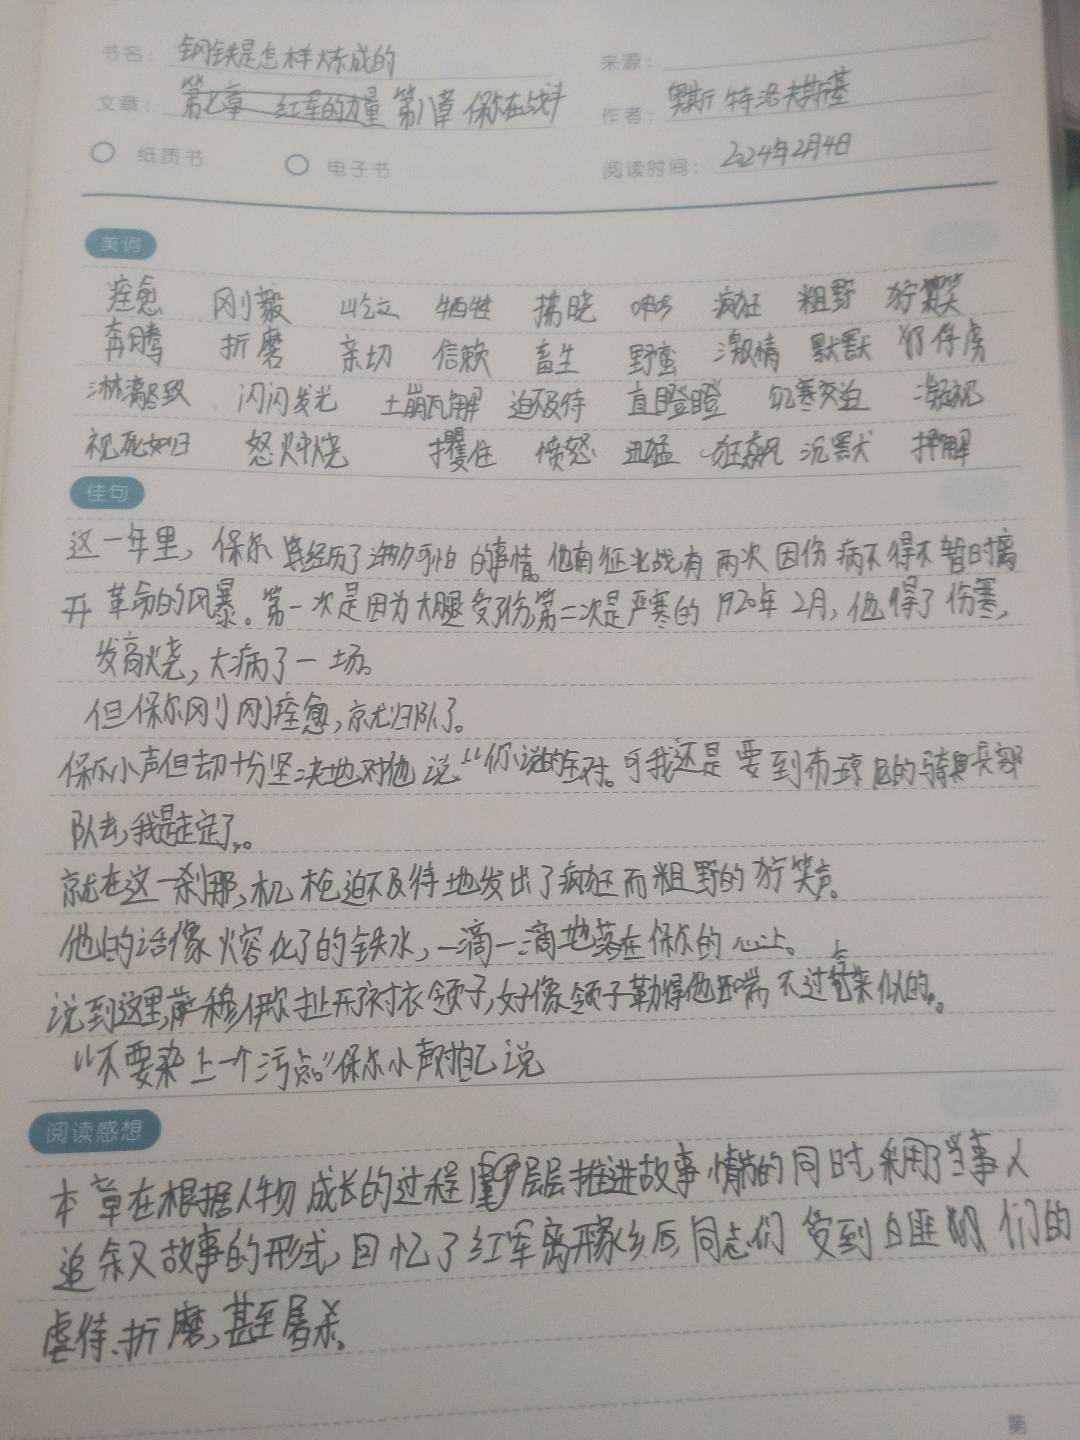 书名: 钢铁是怎样炼成的
来源:
文章: 第七章 红军的力量 第八章 保尔在战斗
作者: 奥斯特洛夫斯基
纸质书 电子书 阅读时间: 2024年2月4日
美词
痊愈 刚毅 牺牲 拂晓 疯狂 粗野 狞笑
奔腾 折磨 亲切 信赖 畜生 野蛮 激情 默默 俘虏
淋漓尽致 闪闪发光 土崩瓦解 迫不及待 直瞪瞪 饥寒交迫 凝视
视死如归 怒火中烧 攫住 愤怒 迅猛 狂飙 沉默 押解
佳句
这一年里,保尔经历了许多可怕的事情。他南征北战有两次因伤病不得不暂时离
开革命的风暴。第一次是因为大腿受了伤,第二次是严寒的1920年2月,他得了伤寒,
发高烧,大病了一场。
但保尔刚刚痊愈,就归队了。
保尔小声但却十分坚决地对他说“你说的全对。可我还是要到布琼尼的骑兵部
队去,我是走定了”。
就在这一刹那,机枪迫不及待地发出了疯狂而粗野的狞笑声。
他的话像熔化了的铁水,一滴一滴地落在保尔的心上。
说到这里,萨穆伊尔扯开衬衣领子,好像领子勒得他喘不过气来似的。
“不要染上一个污点。”保尔小声对自己说
阅读感想
本章在根据人物成长的过程层层推进故事情节的同时,采用了当事人
追叙故事的形式,回忆了红军离开家乡后,同志们受到白匪们的
虐待、折磨,甚至屠杀。
第